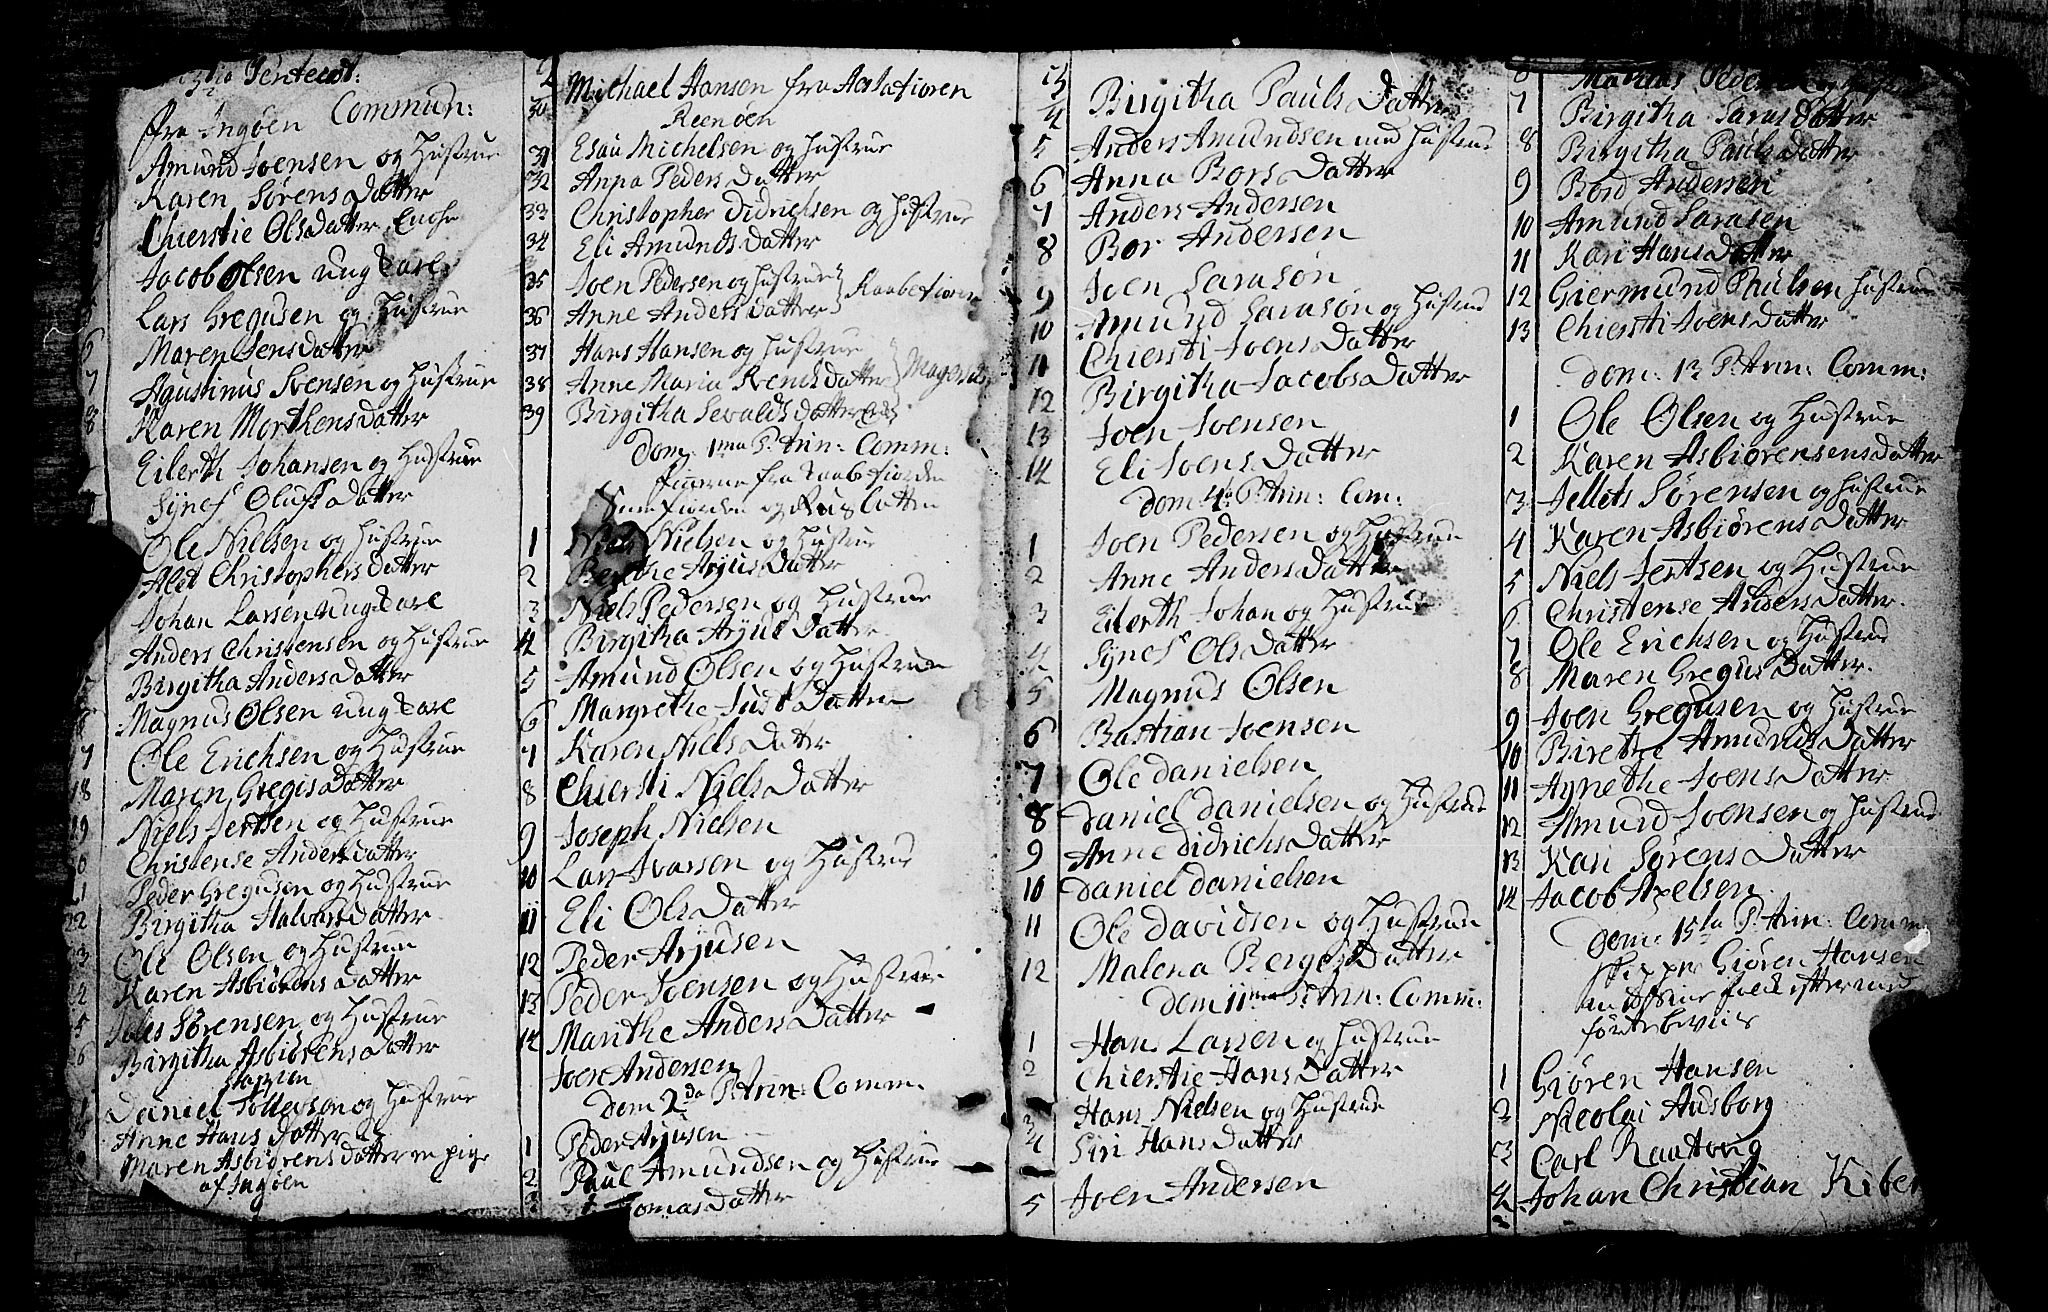 3tia Pentecost:
fra Ingøen Commun:
Amund Joensen og Hustrue
Karen Sørens Datter
Chierstie Ols Datter Encke
Jacob Olsen ung Carl
Lars Gregusen og Hustrue
6 Maren Jens Datter
7 Agustinus Svensen og Hustrue
8 Karen Morthens Datter
Eilerth Johansen og Hustrue
Synof Oluffs Datter
Ole Nielsen og Hustrue
Alet Christophers Datter
Johan Larsen ung Carl
Anders Christensen og Hustrue
Birgitha Anders Datter
6 Magnus Olsen ung Carl
7 Ole Erichsen og Hustrue
18 Maren Gregis Datter
19 Niels Jertsen og Hustrue
20 Christense Anders Datter
21 Peder Gregusen og Hustrue
22 Birgitha Halvors Datter
3 Ole Olsen og Hustrue
4 Karen Asbiørens Datter
5 Joles Sørensen og Hustrue
6 Birgitha Asbiørens Datter
Stappen
Daniel Tollefson og Hustrue
8 Anne Hans Datter
Maren Asbiørens Datter en pige
af Ingøen
Michael Hansen fra
30 Reenøen
31 Esau Michelsen og Hustrue
32 Anna Peders Datter
33 Christopher Didrichsen og Hustrue
34 Eli Amunds Datter
35 Joen Pedersen og Hustrue
36 Anne Anders Datter
37 Hans Hansen og Hustrue
38 Anne Maria Svends Datter
39 Birgitha Sevalds Datter
Dom: 1ma P. Trin: Comm:
fra
og Rus
1 Niels Nielsen og Hustrue
2 Berethe Arjus Datter
3 Niels Pedersen og Hustrue
4 Birgitha Arjus Datter
5 Amund Olsen og Hustrue
6 Margrethe Just Datter
7 Karen Niels Datter
8 Chiersti Niels Datter
9 Joseph Nielsen
10 Lars Ivarsen og Hustrue
11 Eli Ols Datter
12 Peder Arjusen
13 Peder Joensen og Hustrue
14 Marithe Anders Datter
Joen Andersen
Dom 2da P. Trin: Comm.
1 Peder Arjusen
2 Paul Amundsen og Hustrue
3 Tomas Datter
4 Birgitha Pauls Datter
5 Anders Amundsen med Hustrue
6 Anna Bors Datter
7 Anders Andersen
8 Bor Andersen
9 Joen Sarasøn
10 Amund Sarasøn og Hustrue
11 Chiersti Joens Datter
12 Birgitha Jacobs Datter
13 Joen Joensen
14 Eli Joens Datter
Dom: 4ta P. Trin: Com:
1 Joen Pedersen og Hustrue
2 Anne Anders Datter
3 Eilerth Johan og Hustrue
4 Synof Ols Datter
5 Magnus Olsen
6 Bastian Joensen
7 Ole Danielsen
8 Daniel Danielsen og Hustrue
9 Anne Didrichs Datter
10 Daniel Danielsen
11 Ole Davidsen og Hustrue
12 Malena Berges Datter
Dom 11ma P. Trin: Comm:
1 Hans Larsen og Hustrue
2 Chierstie Hans Datter
3 Hans Nielsen og Hustrue
4 Siri Hans Datter
5 Joen Andersen
6 Mathias Pedersen og Hustrue
7 Birgitha Saras Datter
8 Birgitha Pauls Datter
9 Bord Andersen
10 Amund Sarasen
11 Kari Hans Datter
12 Giermund Paulsen Hustrue
13 Chiersti Joens Datter
Dom: 12 P. Trin: Comm:
1 Ole Olsen og Hustrue
2 Karen Asbiørensens Datter
3 Jellets Sørensen og Hustrue
4 Karen Asbiørens Datter
5 Niels Jertsen og Hustrue
6 Christense Anders Datter
7 Ole Erichsen og Hustrue
8 Maren Gregus Datter
9 Joen Gregusen og Hustrue
10 Birethe Amunds Datter
11 Agnethe Joens Datter
12 Amund Joensen og Hustrue
13 Kari Sørens Datter
14 Jacob Axelsen
Dom: 15ta P. Trin: Comm
Skipper Giøren Hansen
med sine folk efter med
førte beviis
1 Giøren Hansen
2 Nicolai Ausborg
3 Carl Raatvig
4 Johan Christian Kiber